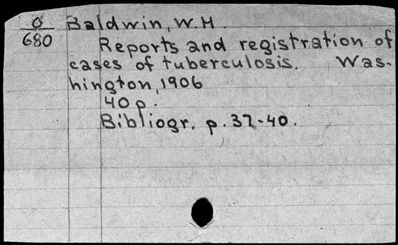 O Baldwin, W.H.
680 Reports and registration of
cases of tuberculosis. Was-
hington, 1906
40 p.
Bibliogr. p. 37-40.